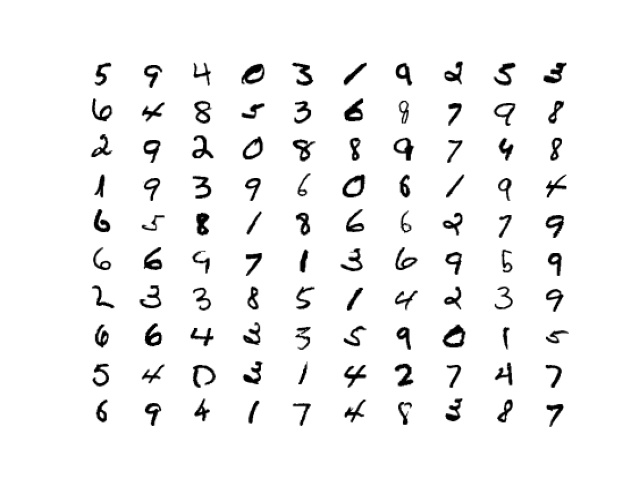 5 9 4 0 3 1 9 2 5 3
6 4 8 5 3 6 8 7 9 8
2 9 2 0 8 8 9 7 4 8
1 9 3 9 6 0 6 1 9 4
6 5 8 1 8 6 6 2 7 9
6 6 9 7 1 3 6 9 5 9
2 3 3 8 5 1 4 2 3 9
6 6 4 3 3 5 9 0 1 5
5 4 0 3 1 4 2 7 4 7
6 9 4 1 7 4 8 3 8 7